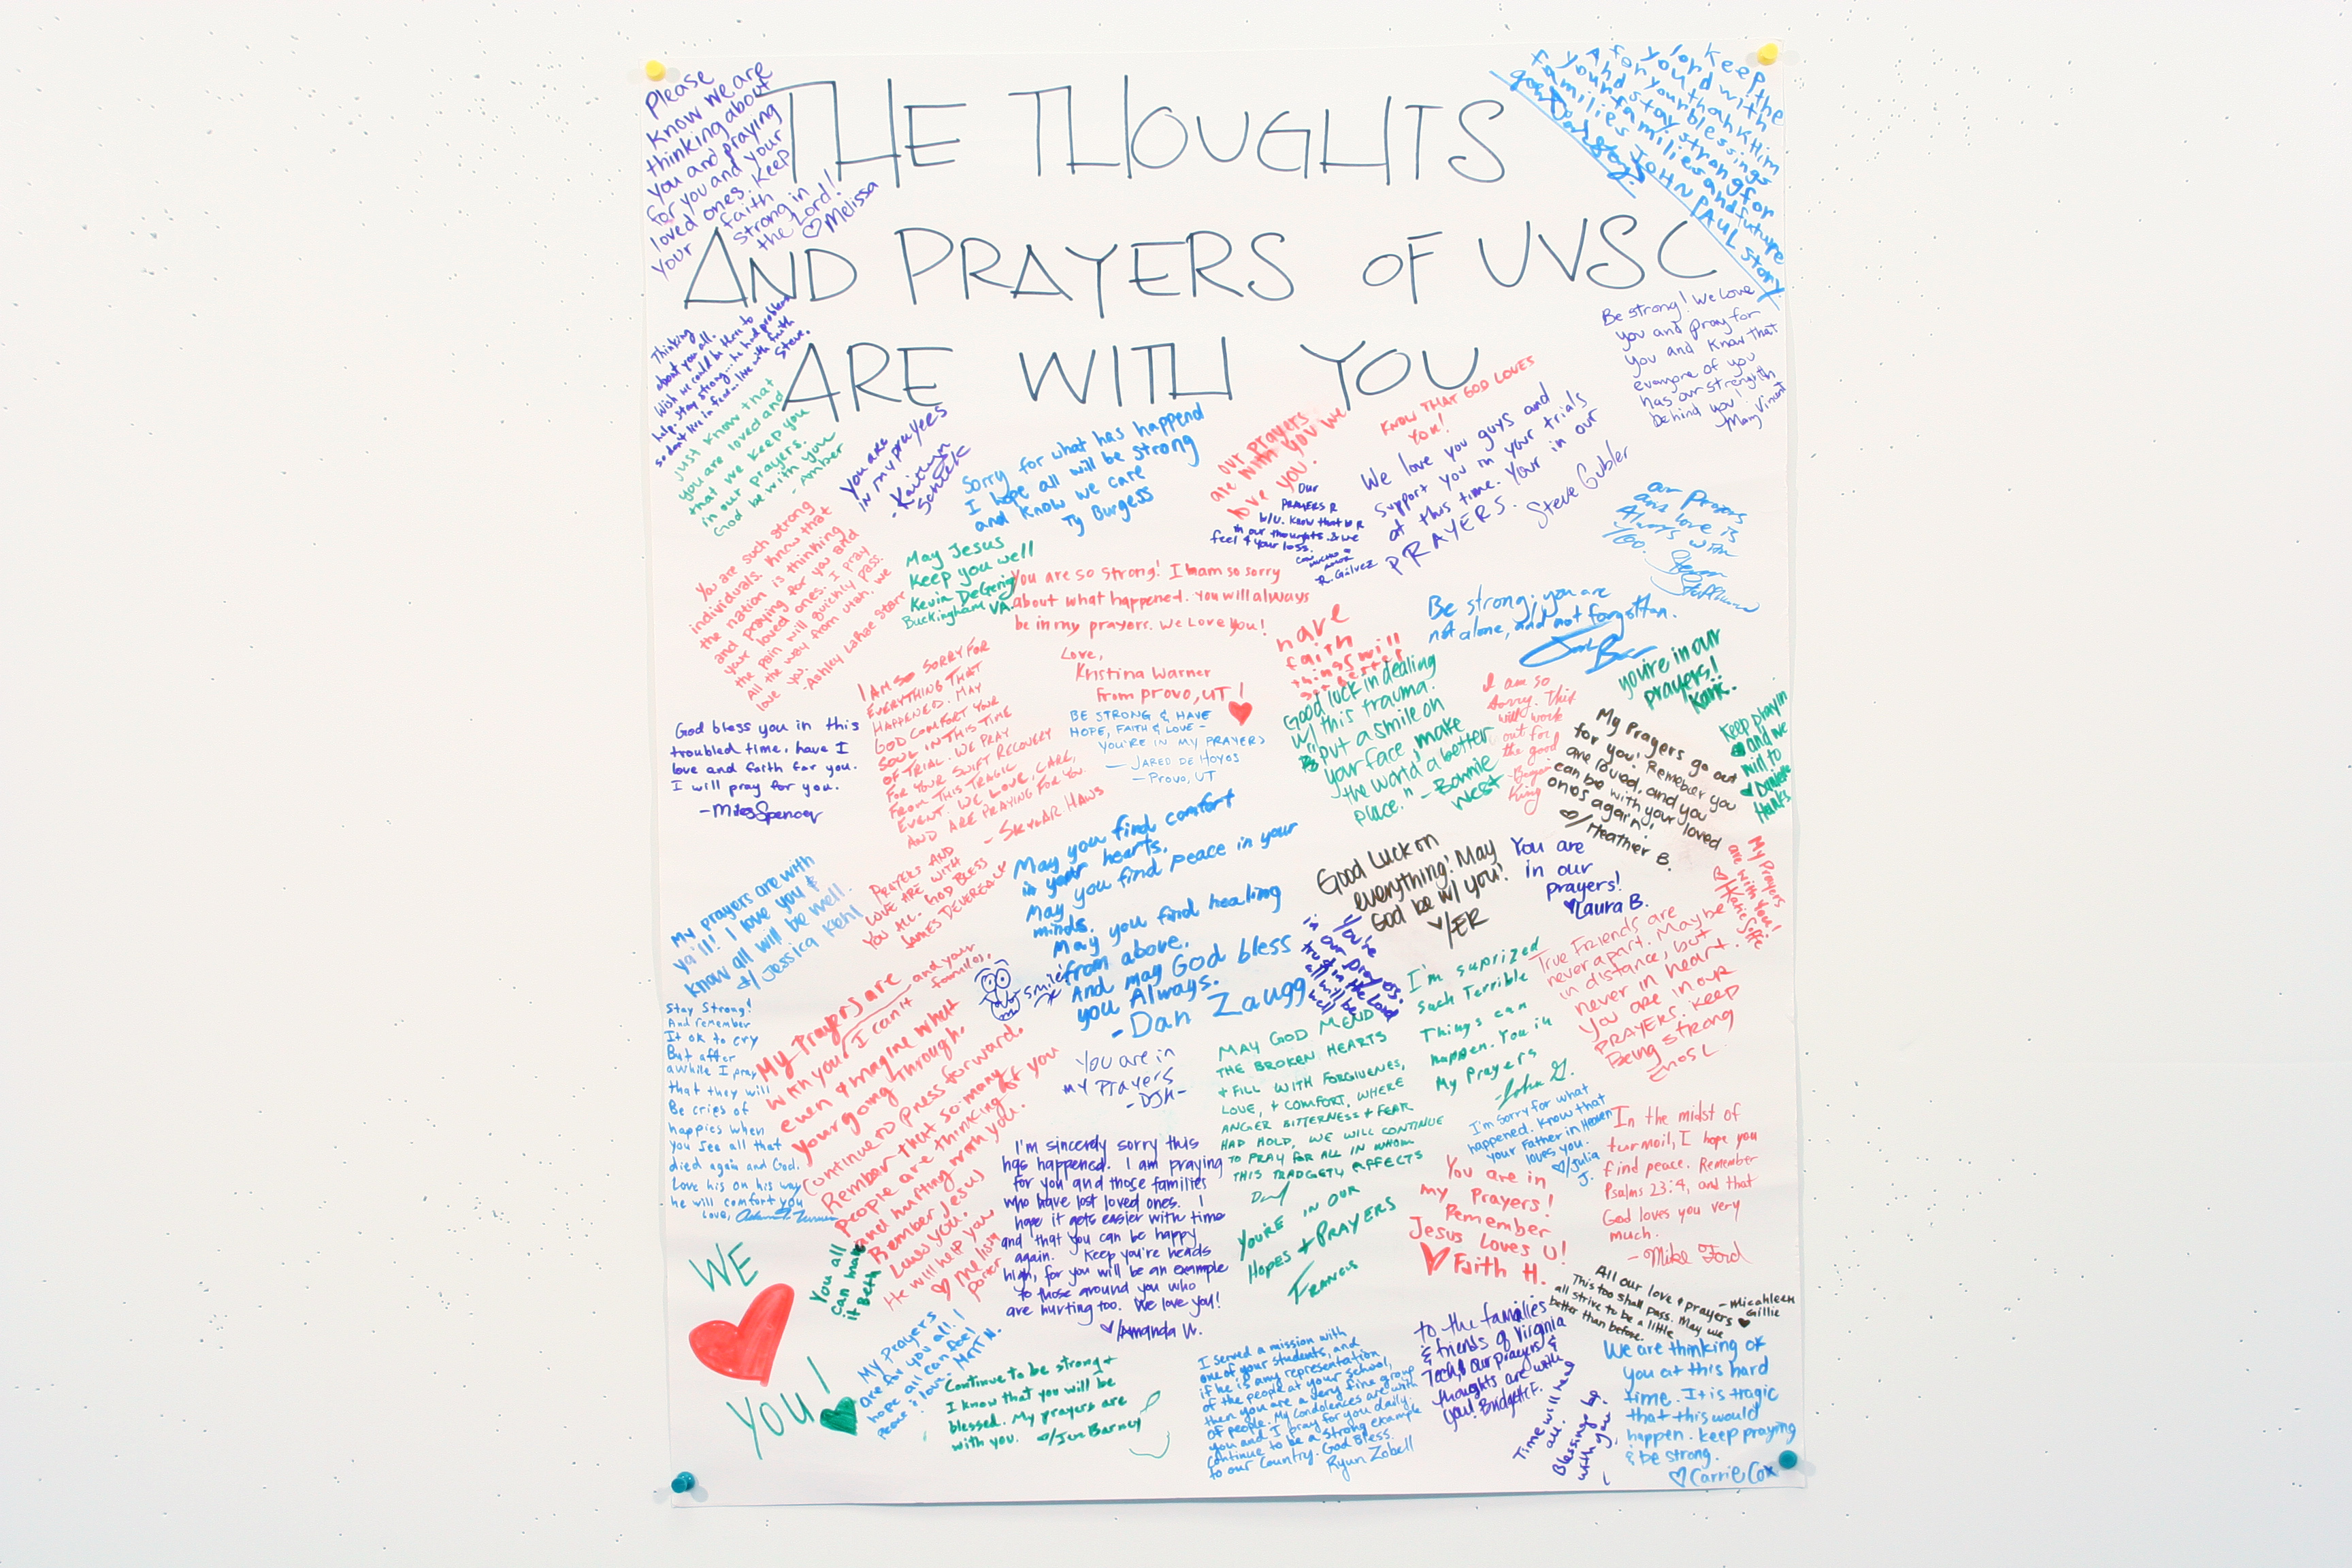 THE THOUGHTS
AND PRAYERS OF UVSC
ARE WITH YOU
Please
know we are
thinking about
you and praying
for you and your
loved ones. Keep
your faith
strong in
the Lord!
♡Melissa
Keep the
Lord with
you thank Him
for your blessings
And stay strong for
your families and future
families JOHN PAUL Story
Thinking
about you all.
Wish we could be there to
help. stay strong... he had problem
so don't live in fear... live with faith
Steve.
Be strong! We love
you and pray for
you and know that
everyone of you
has our strength
behind you!
Mary Vincent
just know that
you are loved and
that we keep you
in our prayers.
God be with you
- Amber
you are
in my prayees
- Kaitlyn
Sorry for what has happend
I hope all will be strong
and know we care
Ty Burgess
our prayers
are with you we
love you!
KNOW THAT GOD LOVES
YOU!
Our
PRAYERS R
w/U. Know that we R
in our thoughts. & we
feel 4 your loss.
R. Galvez
We love you guys and
support you in your trials
at this time. Your in our
PRAYERS.
Steve Gubler
our prayers
and love is
Always with
You.
You are such strong
individuals. Know that
the nation is thinking
and praying for you and
your loved ones. I pray
the pain will quickly pass.
All the way from Utah. we
love you.
-Ashley LaRae Starr
May Jesus
Keep you well
Kevin DeGering
Buckingham VA.
You are so strong! I am so sorry
about what happened. You will always
be in my prayers. We Love You!
Love,
Kristina Warner
From Provo, UT!
Be strong; you are
not alone, and not forgotten.
have
faith
things will
get better
you're in our
prayers!
Karie.
I AM SO SORRY FOR
EVERYTHING THAT
HAPPENED. MAY
GOD COMFORT YOUR
SOUL IN THIS TIME
OF TRIAL. WE PRAY
FOR YOUR SWIFT RECOVERY
FROM THIS TRAGIC
EVENT. WE LOVE, CARE,
AND ARE PRAYING FOR YOU.
- SKYLAR HAWS
God bless you in this
troubled time, have I
love and faith for you.
I will pray for you.
-Miles Spencer
BE STRONG & HAVE
HOPE, FAITH & LOVE-
YOU'RE IN MY PRAYERS
- JARED DE HOYOS
- PROVO, UT
Good luck in dealing
w/ this trauma.
"put a smile on
your face, make
the world a better
place." -Bonnie
West
I am so
sorry. This
will work
out for
the good
King
My Prayers go out
for you! Remeber you
are loved, and you
can be with your loved
ones again!
♡/Heather B.
Keep prayin
and we
will to
Danielle
Hanks
PRAYERS AND
LOVE ARE WITH
YOU ALL. GOD BLESS
JAMES DEVEREAUX
May you find comfort
in your hearts.
May you find peace in your
minds.
May you find healing
from above.
And may God bless
you Always.
- Dan Zaugg
Good Luck on
everything! May
God be w/ you!
♡/ER
You are
in our
prayers!
♡Laura B.
My Prayers
are with you!
My prayers are with
ya'll! I love you &
know all will be well.
♡/Jessica Kehl
You're
in our prayers.
trust in the Lord
all will be
well
smile
I'm suprized
Such Terrible
Things can
happen. You in
My Prayers
-John G.
True Friends are
never apart. Maybe
in distance, but
never in heart.
You are in our
PRAYERS. Keep
Being strong
Enos L.
Stay Strong!
And remember
It ok to cry
But after
awhile I pray
that they will
Be cries of
happies when
you see all that
died again and God.
Love his on his way
he will comfort you
Love,
My Prayers are
with you and your
families. I can't
even imagine what
your going through.
Continue to Press forward.
Rember that so many
people are thinking of you
and hurting with you.
Rember Jesus
Loves you.
He will help you
♡ Melissa
Porter
You are in
my Prayers
-DJH-
MAY GOD MEND
THE BROKEN HEARTS
& FILL WITH FORGIVENES,
LOVE, & COMFORT, WHERE
ANGER BITTERNESS & FEAR
HAD HOLD, WE WILL CONTINUE
TO PRAY FOR ALL IN WHOM
THIS TRADGETY AFFECTS
I'm sorry for what
happened. Know that
your Father in Heaven
loves you.
♡/Julia
J.
In the midst of
turmoil, I hope you
find peace. Remember
Psalms 23:4, and that
God loves you very
much.
- Mike Ford
I'm sincerely sorry this
has happened. I am praying
for you and those families
who have lost loved ones. I
hope it gets easier with time
and that you can be happy
again. Keep you're heads
high, for you will be an example
to those around you who
are hurting too. We love you!
♡/Amanda W.
YOU'RE IN OUR
HOPES & PRAYERS
FRANCIS
You are in
my Prayers!
Remember
Jesus Loves U!
♡ Faith H.
WE
YOU!
You all
can make
it Beth
All our love & prayers
This too shall pass. May we
all strive to be a little
better than before.
-Micahleen
Gillie
My Prayers
are for you all! I
hope all can feel
peace & love- Matt N.
Continue to be strong &
I know that you will be
blessed. My prayers are
with you. ♡/Jen Barney
I served a mission with
one of your students, and
if he is any representation
of the people at your school,
then you are a very fine group
of people. My condolences are with
you and I pray for you daily.
Continue to be a strong example
to our country. God Bless.
Ryan Zobell
to the families
& friends of Virginia
Tech, our prayers &
thoughts are with
you! Bridgett F.
Time will heal
all.
Blessings be
with you!
We are thinking of
you at this hard
time. It is tragic
that this would
happen. keep praying
& be strong.
♡Carrie Cox